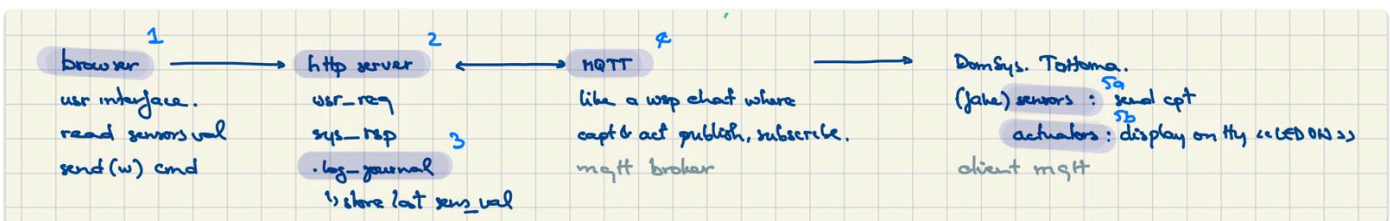 1
browser
usr interface.
read sensors val
send (w) cmd
2
http server
usr_req
sys_rsp
3
.log_journal
↳ store last sens_val
4
MQTT
like a wsp chat where
capt & act publish, subscribe.
mqtt broker
DomSys.
5a
(fake) sensors : send cpt
5b
actuators : display on tty <<LED ON>>
client mqtt